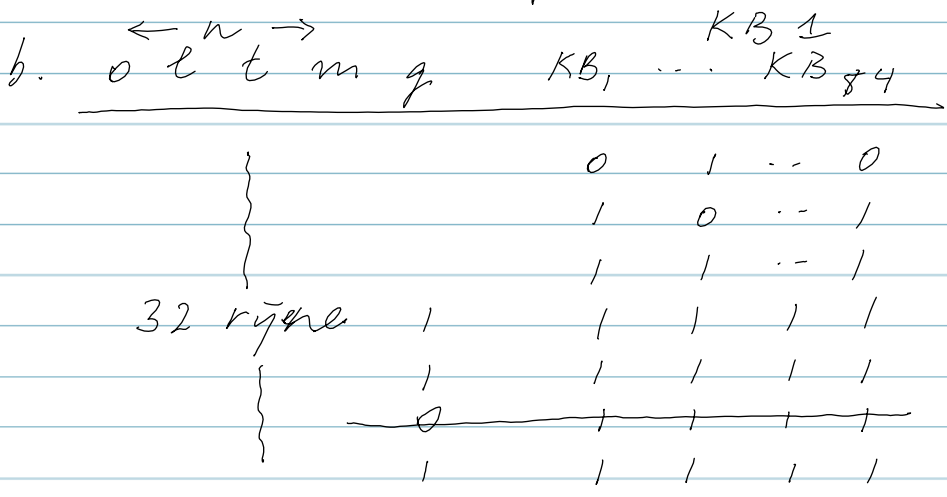 ← n → KB 1
b. o l t m q KB₁ ... KB₈₄
0 1 .. 0
1 0 .. 1
1 1 .. 1
32 1 1 1 1 1
1 1 1 1 1
0 1 1 1 1
1 1 1 1 1